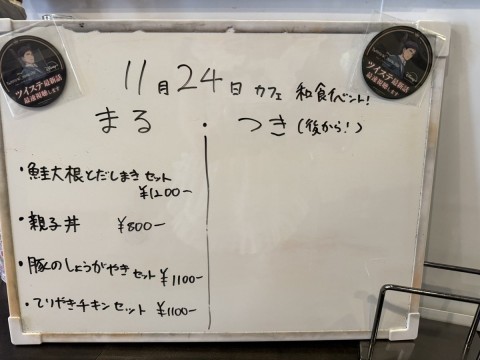 11月24日 カフェ 和食イベント!
まる ・ つき(後から!)
・鮭大根とだしまきセット
¥1200-
・親子丼 ¥800-
・豚のしょうがやきセット ¥1100-
・てりやきチキンセット ¥1100-
ツイステ最新話
最速視聴します
ツイステ最新話
最速視聴します